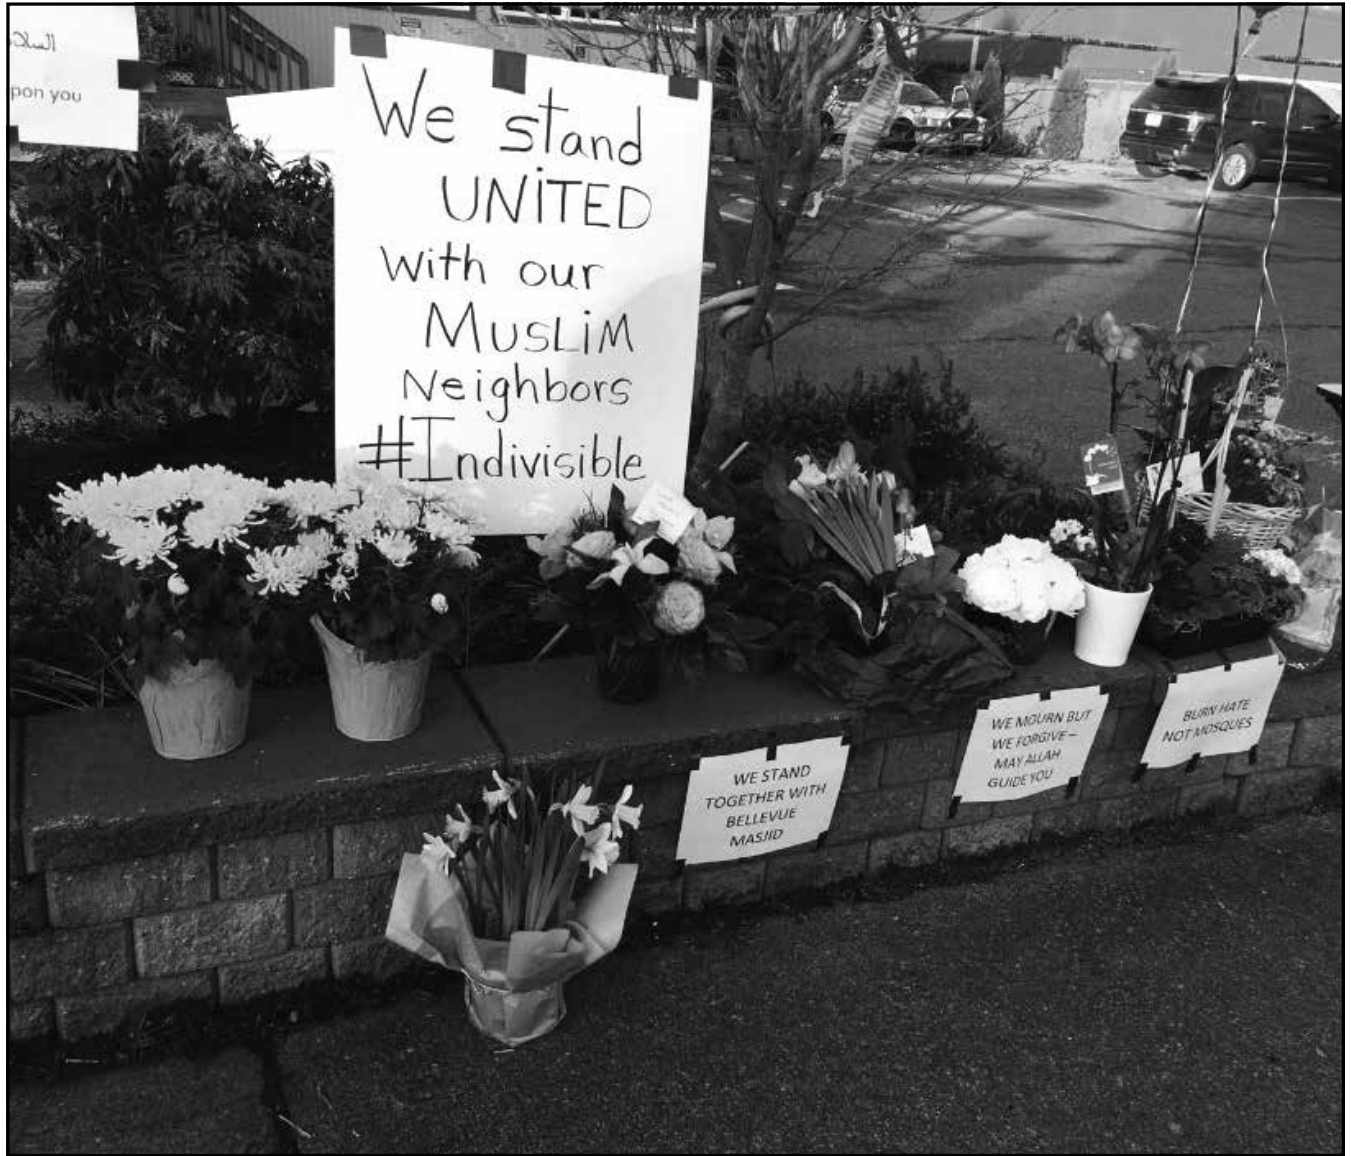 السلا
pon you
We stand
UNiTED
with our
MUSLiM
Neighbors
#Indivisible
WE STAND
TOGETHER WITH
BELLEVUE
MASJID
WE MOURN BUT
WE FORGIVE –
MAY ALLAH
GUIDE YOU
BURN HATE
NOT MOSQUES